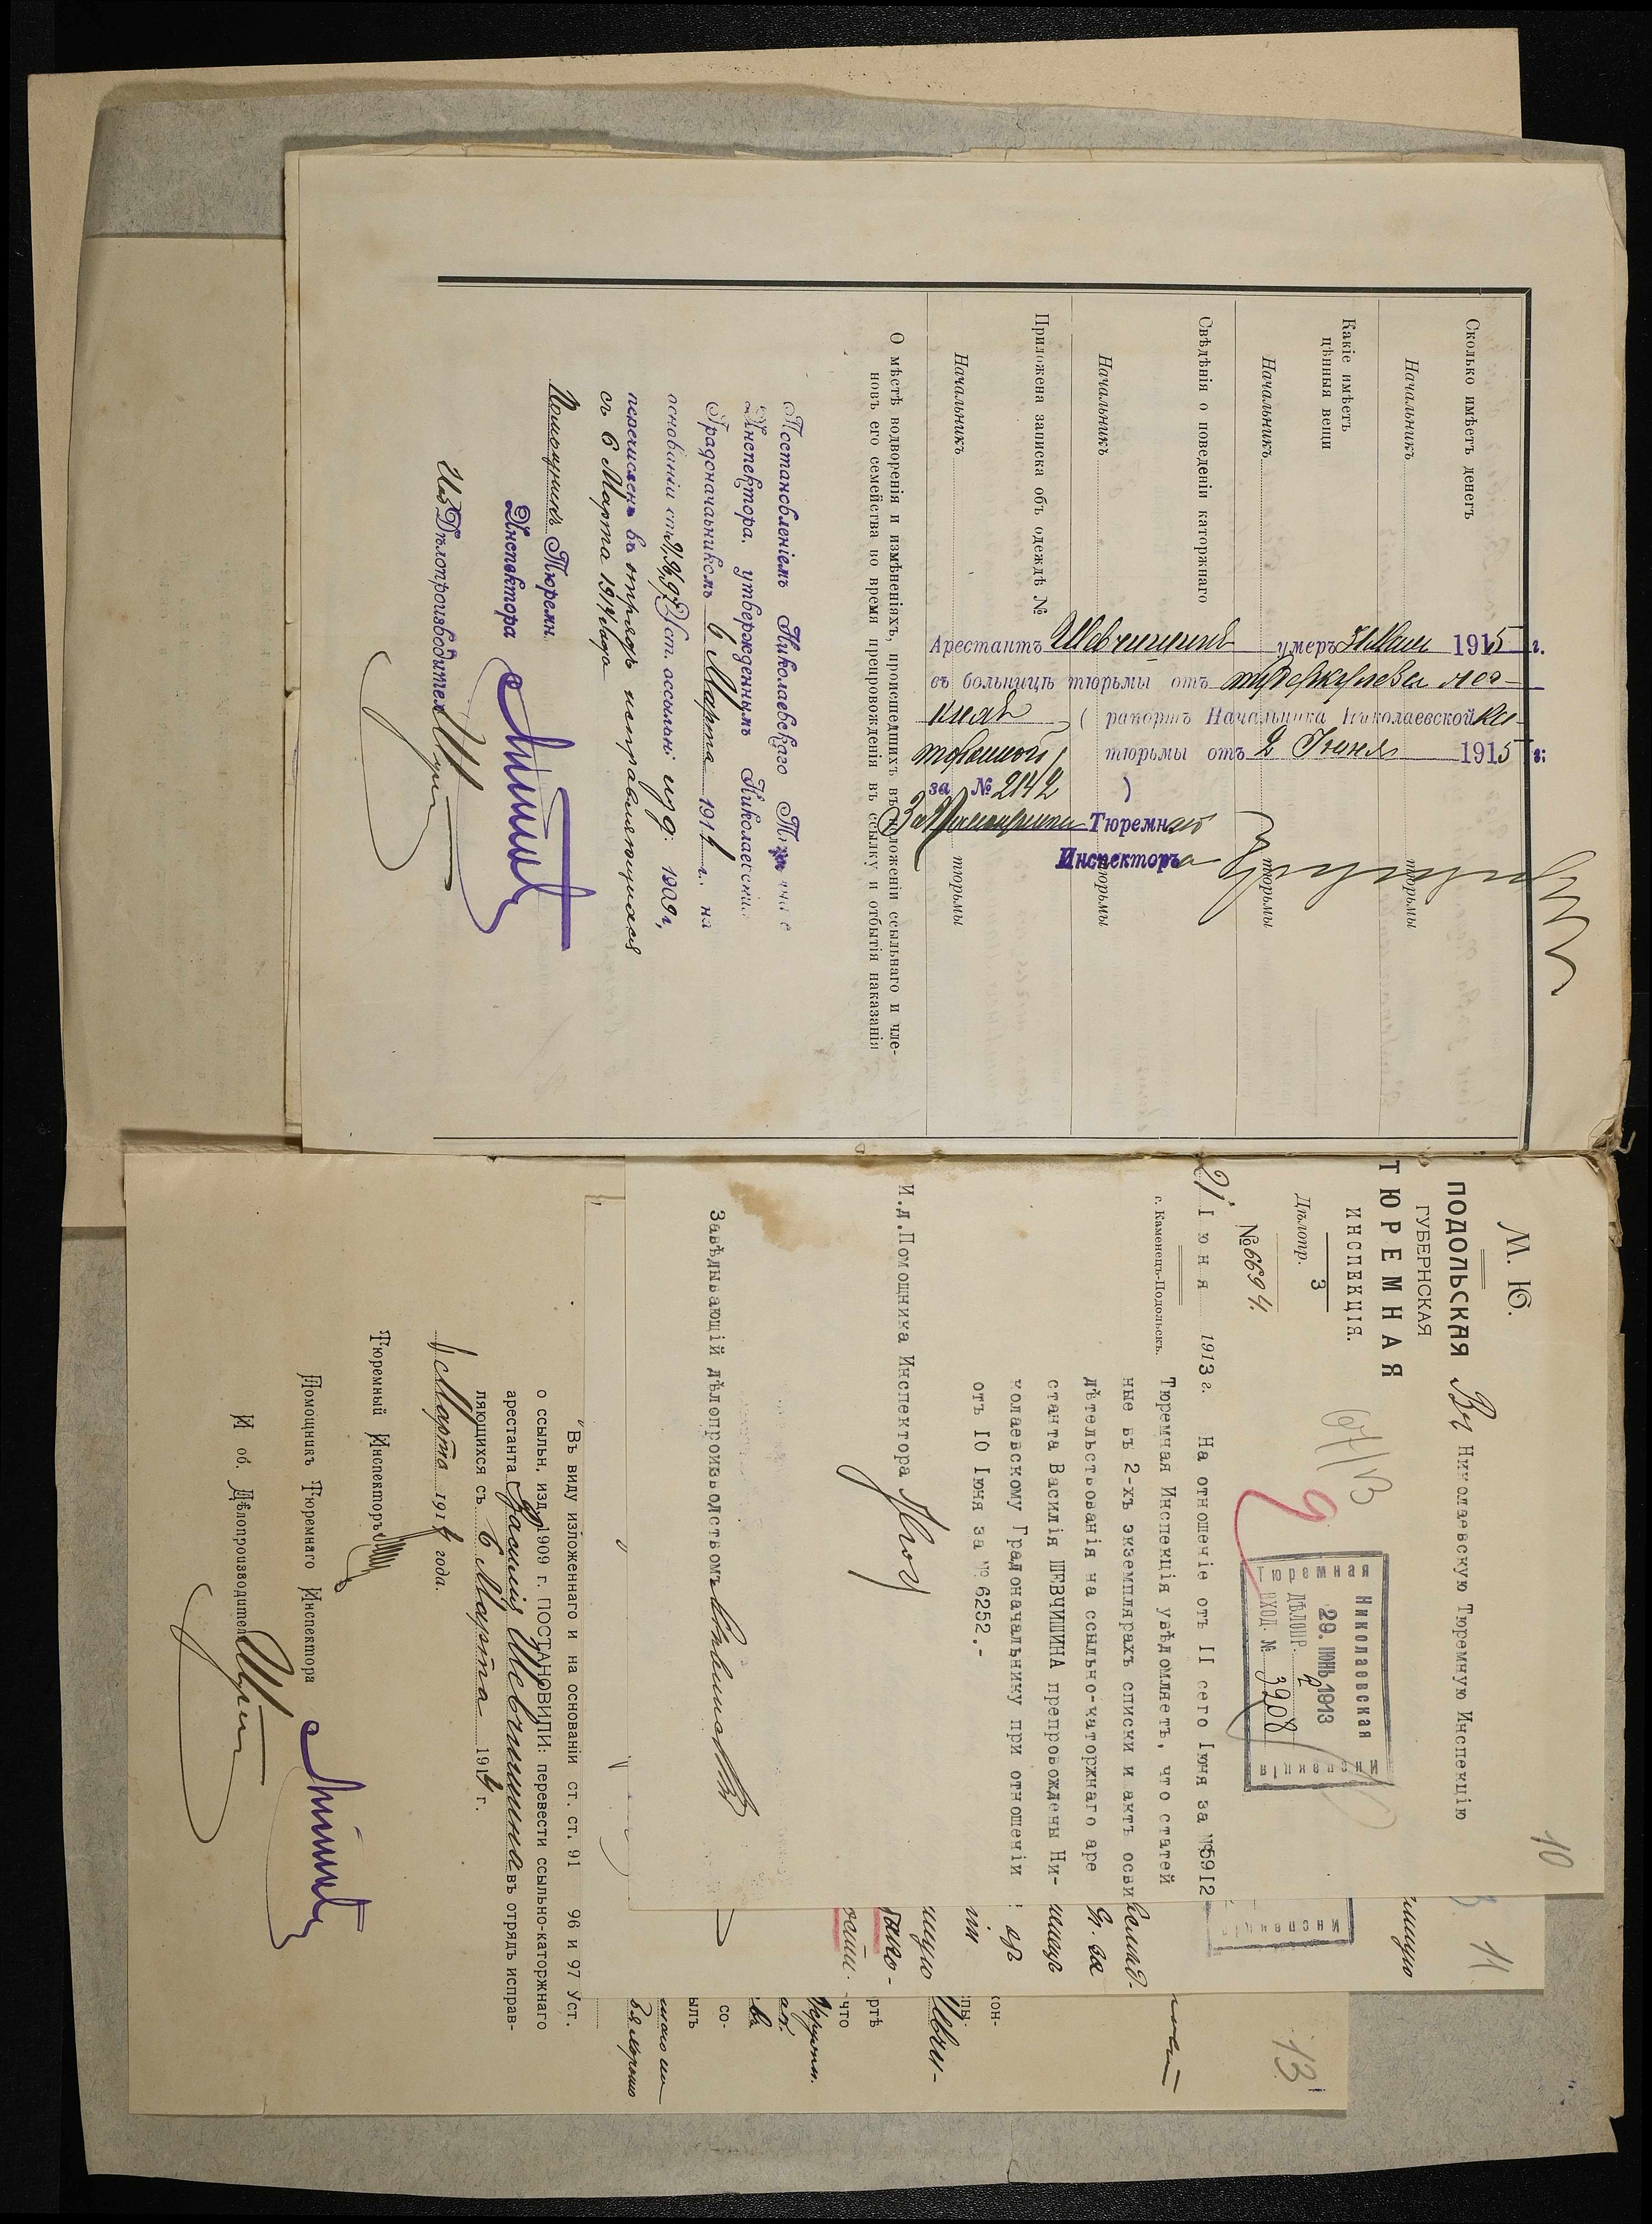 Сколько имѣетъ денегъ
Начальникъ тюрьмы
Какіе имѣетъ
цѣнныя вещи
Начальникъ тюрьмы
Свѣдѣнія о поведеніи каторжнаго
Начальникъ тюрьмы
Приложена записка объ одеждѣ №
Начальникъ тюрьмы
Арестантъ Шевчишинъ умеръ 31 Мая 1915 г.
въ больницѣ тюрьмы отъ туберкулеза лег-
кихъ ( рапортъ Начальника Николаевской ка-
торжной тюрьмы отъ 2 Іюня 1915 г;
за № 2142 )
За Помощника Тюремнаго
Инспектора
О мѣстѣ водворенія и измѣненіяхъ, происшедшихъ въ положеніи ссыльнаго и чле-
новъ его семейства во время препровожденія въ ссылку и отбытія наказанія
Постановленіемъ Николаевскаго
Инспектора, утвержденнымъ Николаевскимъ
Градоначальникомъ 6 Марта 1914 г. на
основаніи ст. 91, 96, 97 Уст. ссыльн: изд: 1909 г,
перечисленъ въ отрядъ исправляющихся
съ 6 Марта 1914 года
Помощникъ Тюремн.
Инспектора
И об Дѣлопроизводителя
М. Ю.
ПОДОЛЬСКАЯ
ГУБЕРНСКАЯ
ТЮРЕМНАЯ
ИНСПЕКЦІЯ.
Дѣлопр. 3
№ 6694.
21 Іюня 1913 г.
г. Каменецъ-Подольскъ.
10
Въ Николаевскую Тюремную Инспекцію
67/В
9
Николаевская
Тюремная
Инспекція
29. ІЮНЬ 1913
ДѢЛОПР. 2
ВХОД. № 3208
На отношеніе отъ II сего Іюня за №5912
Тюремная Инспекція увѣдомляетъ, что статей
ные въ 2-хъ экземплярахъ списки и актъ осви
дѣтельствованія на ссыльно-каторжнаго аре
станта Василія ШЕВЧИШИНА препровождены Ни-
колаевскому Градоначальнику при отношеніи
отъ IO Іюня за № 6252.-
И.д.Помощника Инспектора
Завѣдывающій дѣлопроизводствомъ
11
Инспекція
13
Въ виду изложеннаго и на основаніи ст. ст. 91 96 и 97 Уст.
о ссыльн, изд. 1909 г. ПОСТАНОВИЛИ: перевести ссыльно-каторжнаго
арестанта Василія Шевчишина въ отрядъ исправ-
ляющихся съ 6 Марта 1914 г.
Марта 1914 года.
Тюремный Инспекторъ
Помощникъ Тюремнаго Инспектора
И об. Дѣлопроизводителя